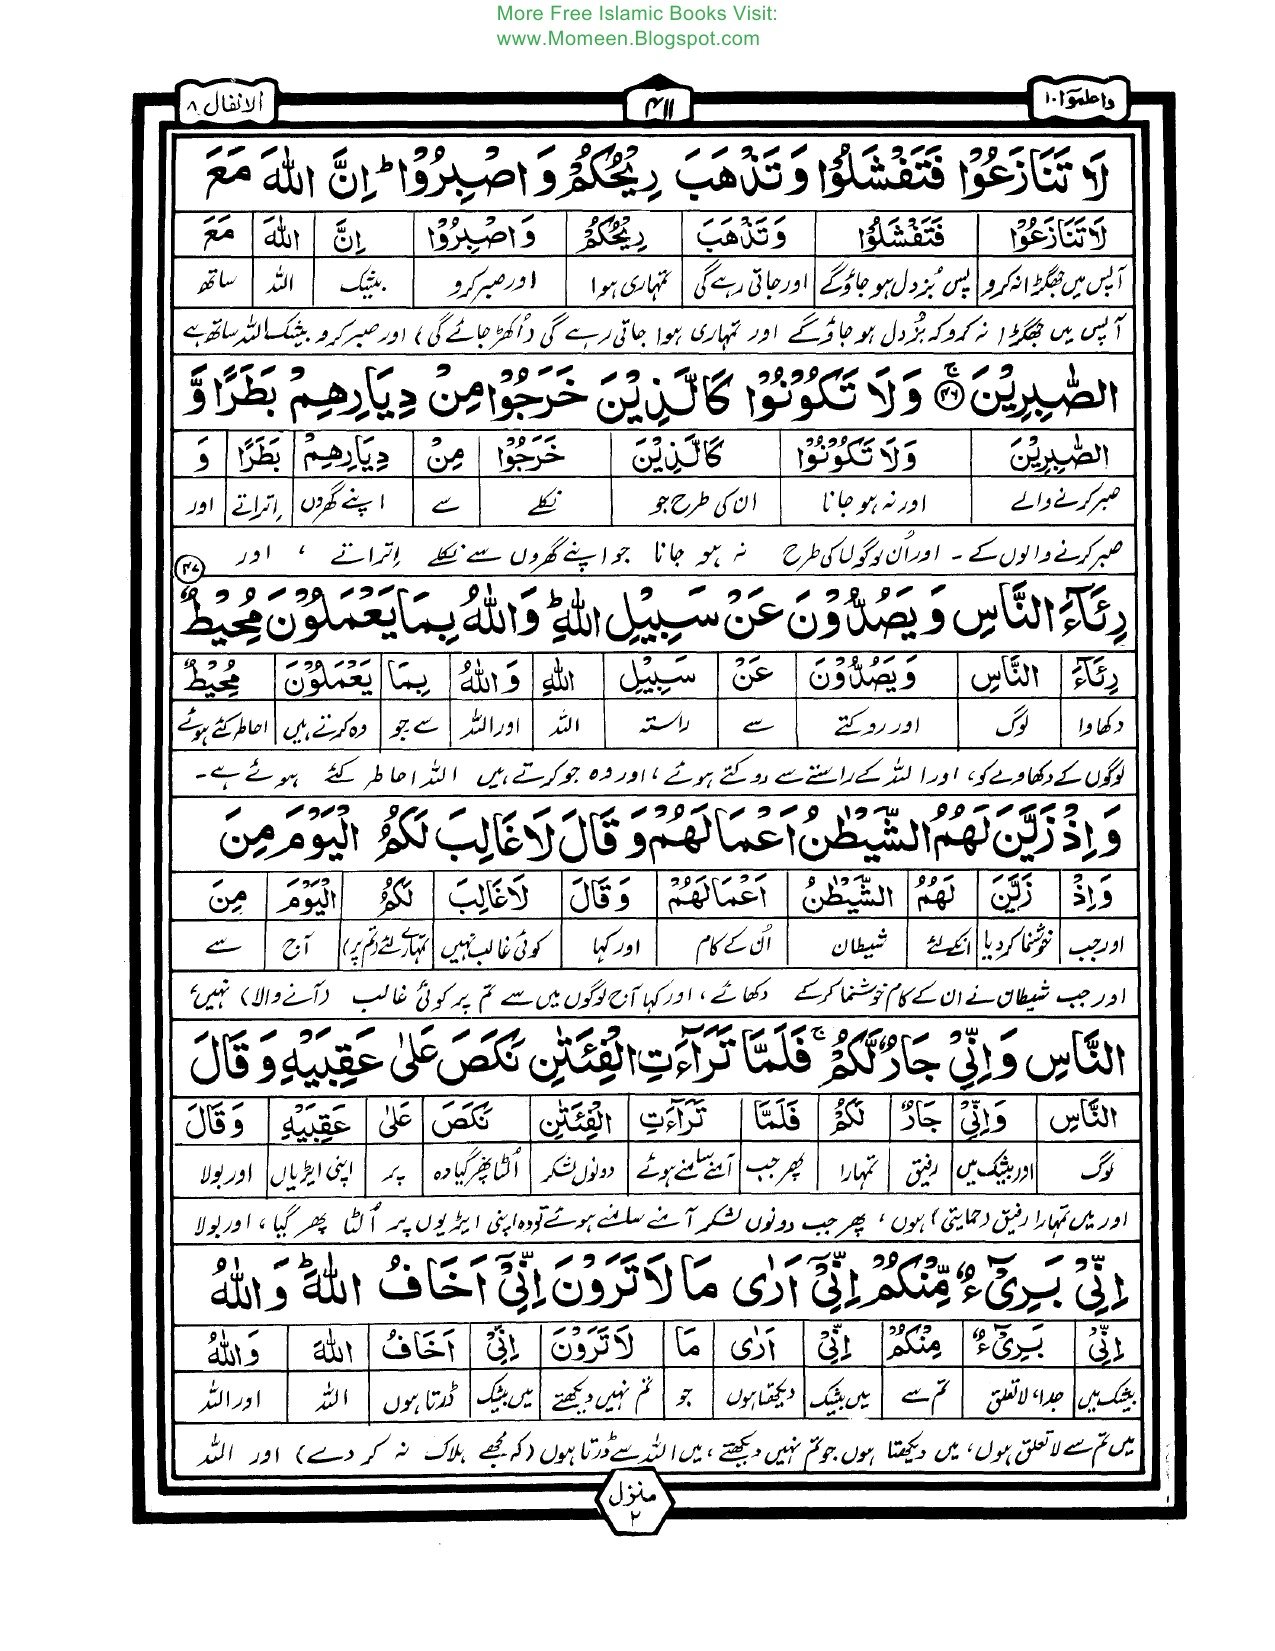 More Free Islamic Books Visit:
www.Momeen.Blogspot.com
واعلموا ١٠
٤١١
الانفال ٨
لَا تَنَازَعُوْا فَتَفْشَلُوْا وَتَذْهَبَ رِيْحُكُمْ وَاصْبِرُوْا ؕ اِنَّ اللّٰهَ مَعَ
لَا تَنَازَعُوْا فَتَفْشَلُوْا وَتَذْهَبَ رِيْحُكُمْ وَاصْبِرُوْا اِنَّ اللّٰهَ مَعَ
آپس میں جھگڑا نہ کرو پس بُزدل ہو جاؤگے اور جاتی رہے گی تمہاری ہوا اور صبر کرو بیشک اللہ ساتھ
آپس میں جھگڑا نہ کرو کہ بُزدل ہو جاؤگے اور تمہاری ہوا جاتی رہے گی (اُکھڑ جائے گی) اور صبر کرو بیشک اللہ ساتھ ہے
الصّٰبِرِيْنَ ۚ ﴿٤٦﴾ وَلَا تَكُوْنُوْا كَالَّذِيْنَ خَرَجُوْا مِنْ دِيَارِهِمْ بَطَرًا وَّ
الصّٰبِرِيْنَ وَلَا تَكُوْنُوْا كَالَّذِيْنَ خَرَجُوْا مِنْ دِيَارِهِمْ بَطَرًا وَّ
صبر کرنے والے اور نہ ہو جانا ان کی طرح جو نکلے سے اپنے گھروں اِتراتے اور
صبر کرنے والوں کے ۔ اور اُن لوگوں کی طرح نہ ہو جانا جو اپنے گھروں سے نکلے اِتراتے ، اور
رِئَآءَ النَّاسِ وَيَصُدُّوْنَ عَنْ سَبِيْلِ اللّٰهِ ؕ وَاللّٰهُ بِمَا يَعْمَلُوْنَ مُحِيْطٌ ﴿٤٧﴾
رِئَآءَ النَّاسِ وَيَصُدُّوْنَ عَنْ سَبِيْلِ اللّٰهِ وَاللّٰهُ بِمَا يَعْمَلُوْنَ مُحِيْطٌ
دکھاوا لوگ اور روکتے سے راستہ اللہ اور اللہ سے جو وہ کرتے ہیں احاطہ کئے ہوئے
لوگوں کے دکھاوے کو، اور اللہ کے راستے سے روکتے ہوئے ، اور وہ جو کرتے ہیں اللہ احاطہ کئے ہوئے ہے ۔
وَاِذْ زَيَّنَ لَهُمُ الشَّيْطٰنُ اَعْمَالَهُمْ وَقَالَ لَا غَالِبَ لَكُمُ الْيَوْمَ مِنَ
وَاِذْ زَيَّنَ لَهُمُ الشَّيْطٰنُ اَعْمَالَهُمْ وَقَالَ لَا غَالِبَ لَكُمُ الْيَوْمَ مِنَ
اور جب خوشنما کر دیا انکے لئے شیطان اُن کے کام اور کہا کوئی غالب نہیں تمہارے لئے (تم پر) آج سے
اور جب شیطان نے ان کے کام خوشنما کر کے دکھائے ، اور کہا آج لوگوں میں سے تم پر کوئی غالب (آنے والا) نہیں ،
النَّاسِ وَاِنِّيْ جَارٌ لَّكُمْ ۚ فَلَمَّا تَرَآءَتِ الْفِئَتٰنِ نَكَصَ عَلٰى عَقِبَيْهِ وَقَالَ
النَّاسِ وَاِنِّيْ جَارٌ لَكُمْ فَلَمَّا تَرَآءَتِ الْفِئَتٰنِ نَكَصَ عَلٰى عَقِبَيْهِ وَقَالَ
لوگ اور بیشک میں رفیق تمہارا پھر جب آمنے سامنے ہوئے دونوں لشکر اُلٹا پھر گیا وہ پر اپنی ایڑیاں اور بولا
اور میں تمہارا رفیق (حمایتی) ہوں ، پھر جب دونوں لشکر آمنے سامنے ہوئے تو وہ اپنی ایڑیوں پر اُلٹا پھر گیا ، اور بولا
اِنِّيْ بَرِيْٓءٌ مِّنْكُمْ اِنِّيْٓ اَرٰى مَا لَا تَرَوْنَ اِنِّيْٓ اَخَافُ اللّٰهَ ؕ وَاللّٰهُ
اِنِّيْ بَرِيْٓءٌ مِنْكُمْ اِنِّيْٓ اَرٰى مَا لَا تَرَوْنَ اِنِّيْٓ اَخَافُ اللّٰهَ وَاللّٰهُ
بیشک میں جدا، لاتعلق تم سے میں بیشک دیکھتا ہوں جو تم نہیں دیکھتے میں بیشک ڈرتا ہوں اللہ اور اللہ
میں تم سے لاتعلق ہوں، میں دیکھتا ہوں جو تم نہیں دیکھتے ، میں اللہ سے ڈرتا ہوں (کہ مجھے ہلاک نہ کر دے) اور اللہ
منزل
٢